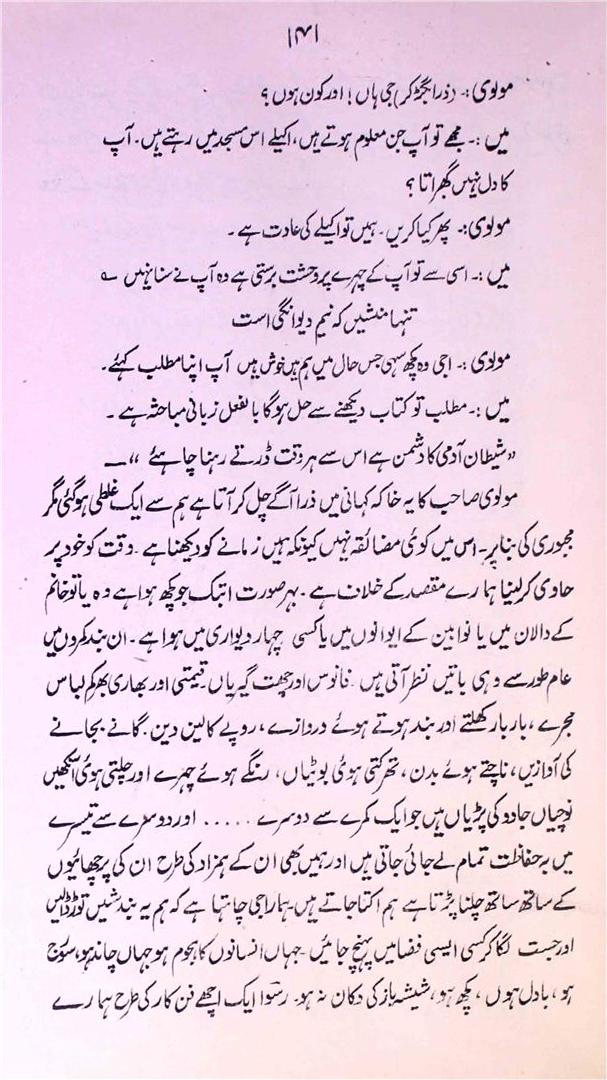 ۱۴۱
مولوی :۔ (ذرا بگڑ کر) جی ہاں ! اور کون ہوں ؟
میں :۔ مجھے تو آپ جن معلوم ہوتے ہیں، اکیلے اس مسجد میں رہتے ہیں۔ آپ
کا دل نہیں گھبراتا ؟
مولوی :۔ پھر کیا کریں۔ ہمیں تو اکیلے کی عادت ہے۔
میں :۔ اسی سے تو آپ کے چہرے پر وحشت برستی ہے وہ آپ نے سنا نہیں ؎
تنہا منشیں کہ نیم دیوانگی است
مولوی :۔ اجی وہ کچھ سہی جس حال میں ہم ہیں خوش ہیں آپ اپنا مطلب کہئے۔
میں :۔ مطلب تو کتاب دیکھنے سے حل ہوگا بالفعل زبانی مباحثہ ہے۔
"شیطان آدمی کا دشمن ہے اس سے ہر وقت ڈرتے رہنا چاہئے" ــ
مولوی صاحب کا یہ خاکہ کہانی میں ذرا آگے چل کر آتا ہے ہم سے ایک غلطی ہوگئی مگر
مجبوری کی بنا پر۔ اس میں کوئی مضائقہ نہیں کیونکہ ہمیں زمانے کو دیکھنا ہے۔ وقت کو خود پر
حاوی کر لینا ہمارے مقصد کے خلاف ہے۔ بہر صورت ابتک جو کچھ ہوا ہے وہ یا تو خانم
کے دالان میں یا نوابین کے ایوانوں میں یا کسی چہار دیواری میں ہوا ہے۔ ان بند کمروں میں
عام طور سے وہی باتیں نظر آتی ہیں۔ فانوس اور چھت گیریاں۔ قیمتی اور بھاری بھرکم لباس
مجرے، بار بار کھلتے اور بند ہوتے ہوئے دروازے، روپے کا لین دین۔ گانے بجانے
کی آوازیں، ناچتے ہوئے بدن، تھرکتی ہوئی بوٹیاں، رنگے ہوئے چہرے اور چلتی ہوئی آنکھیں
نوچیاں جادو کی پڑیاں ہیں جو ایک کمرے سے دوسرے ..... اور دوسرے سے تیسرے
میں بہ حفاظت تمام لے جائی جاتی ہیں اور ہمیں بھی ان کے ہمزاد کی طرح ان کی پرچھائیوں
کے ساتھ ساتھ چلنا پڑتا ہے ہم اکتا جاتے ہیں۔ ہمارا جی چاہتا ہے کہ ہم یہ بندشیں توڑ ڈالیں
اور جست لگا کر کسی ایسی فضا میں پہنچ جائیں۔ جہاں انسانوں کا ہجوم ہو جہاں چاند ہو، سورج
ہو، بادل ہوں، کچھ ہو، شیشہ باز کی دکان نہ ہو۔ رسوا ایک اچھے فن کار کی طرح ہمارے